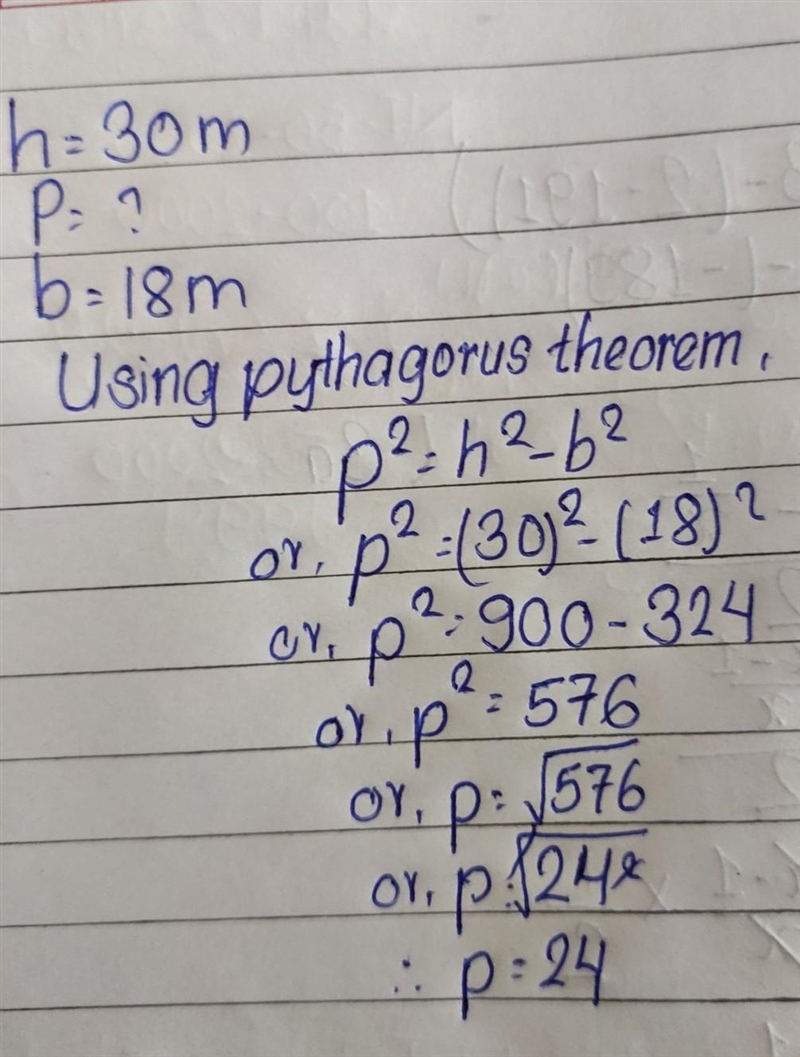 h = 30 m
p = ?
b = 18 m
Using pythagorus theorem,
p² = h² - b²
or, p² = (30)² - (18)²
or, p² = 900 - 324
or, p² = 576
or, p = √576
or, p = √24²
∴ p = 24